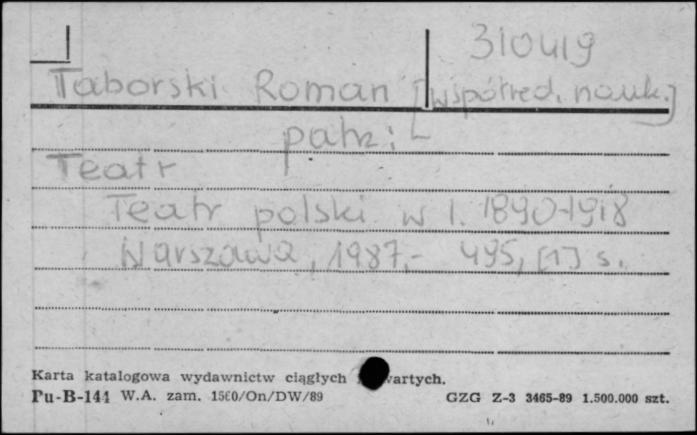 310419
Taborski Roman [współred. nauk.]
patrz:
Teatr
Teatr polski w l. 1890-1918
Warszawa, 1987,- 495, [1] s.
Karta katalogowa wydawnictw ciągłych wartych.
Pu-B-144 W.A. zam. 1560/On/DW/89 GZG Z-3 3465-89 1.500.000 szt.